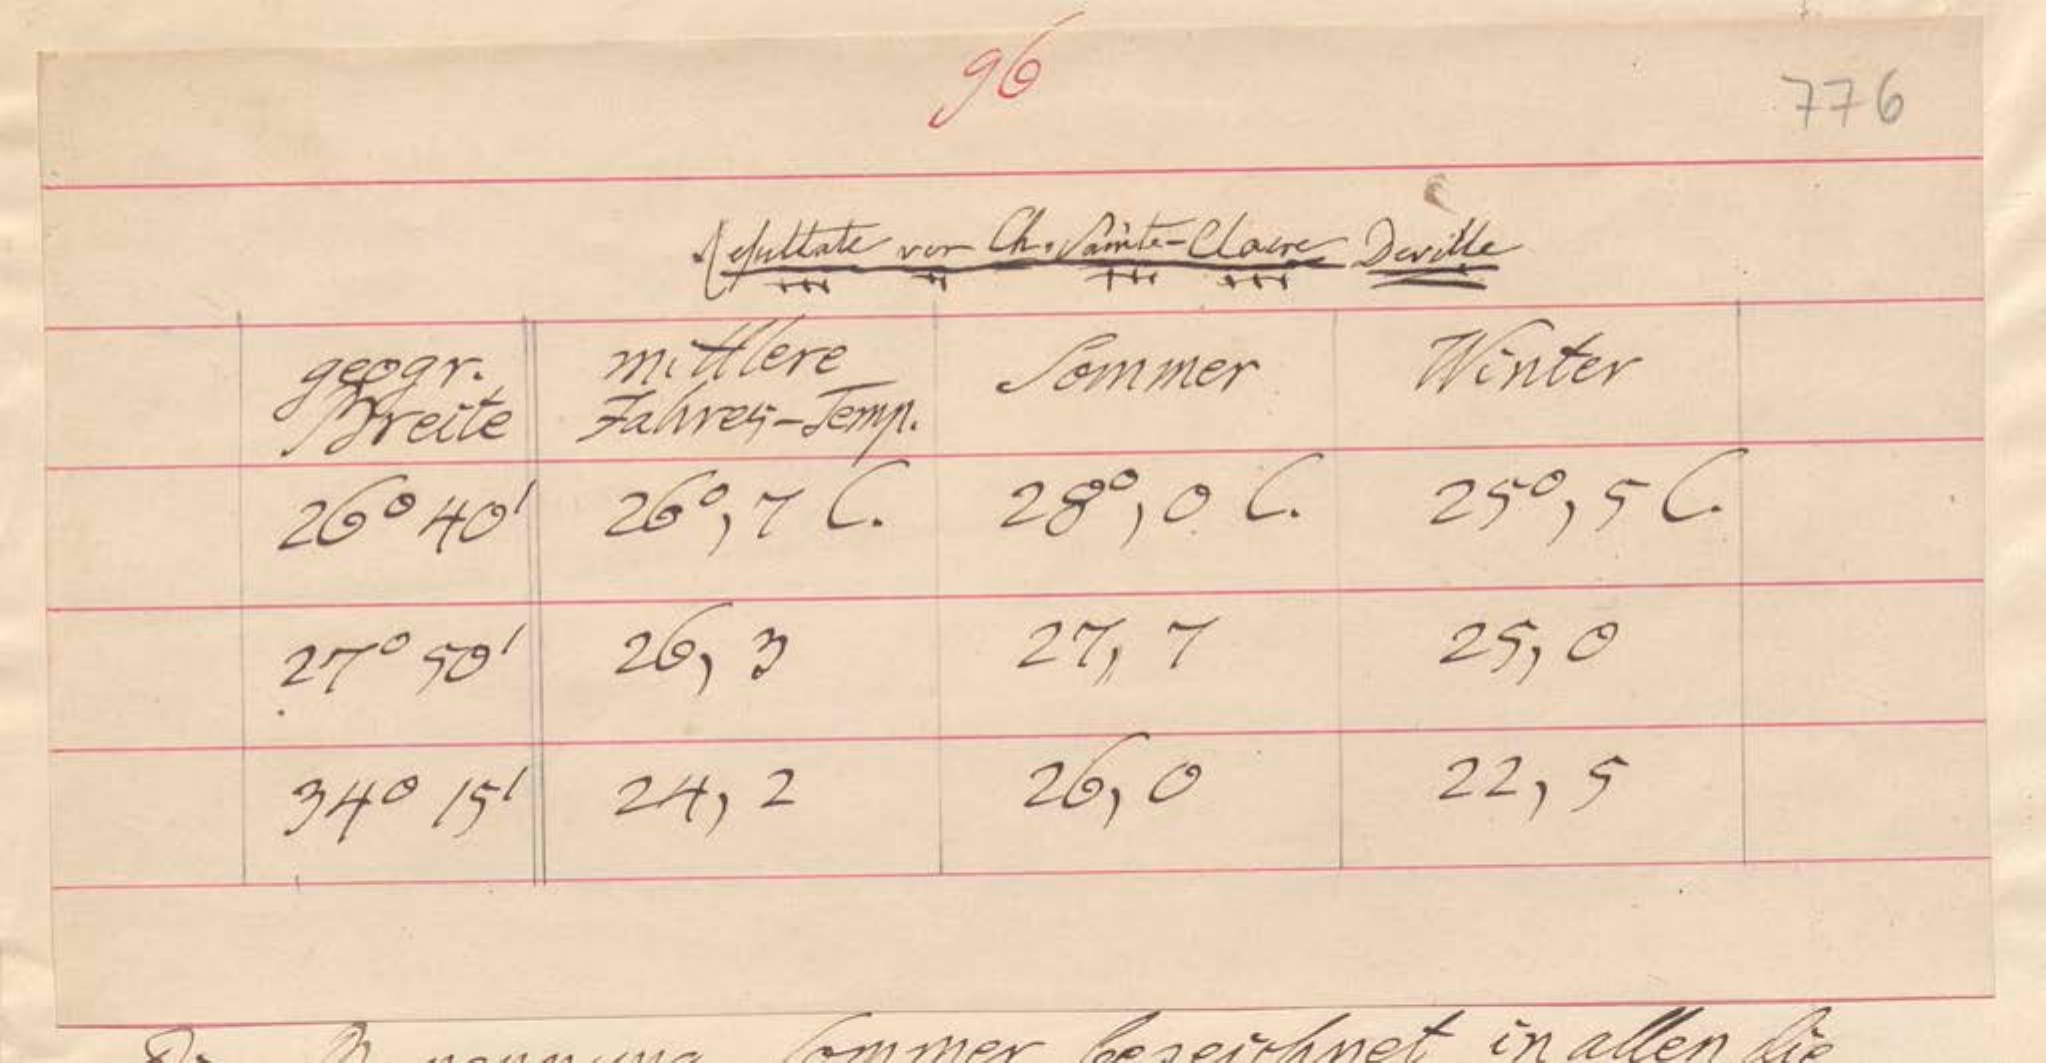 96
776
Resultate von Ch. Sainte-Claire Deville
geogr. Breite mittlere Jahres-Temp. Sommer Winter
26° 40' 26°,7 C. 28°,0 C. 25°,5 C.
27° 50' 26,3 27,7 25,0
34° 15' 24,2 26,0 22,5
Die Benennung Sommer bezeichnet in allen die